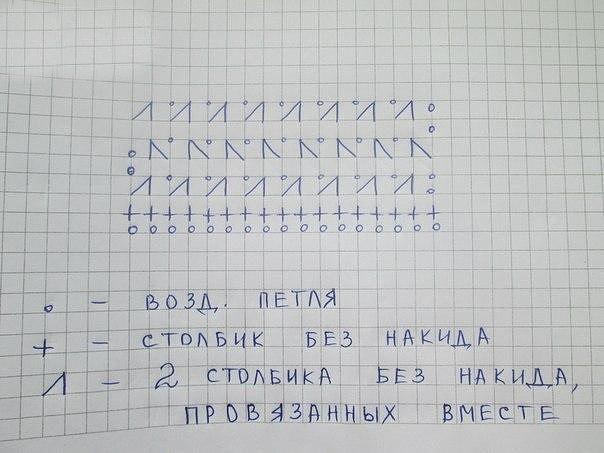 о – ВОЗД. ПЕТЛЯ
+ – СТОЛБИК БЕЗ НАКИДА
Λ – 2 СТОЛБИКА БЕЗ НАКИДА,
ПРОВЯЗАННЫХ ВМЕСТЕ